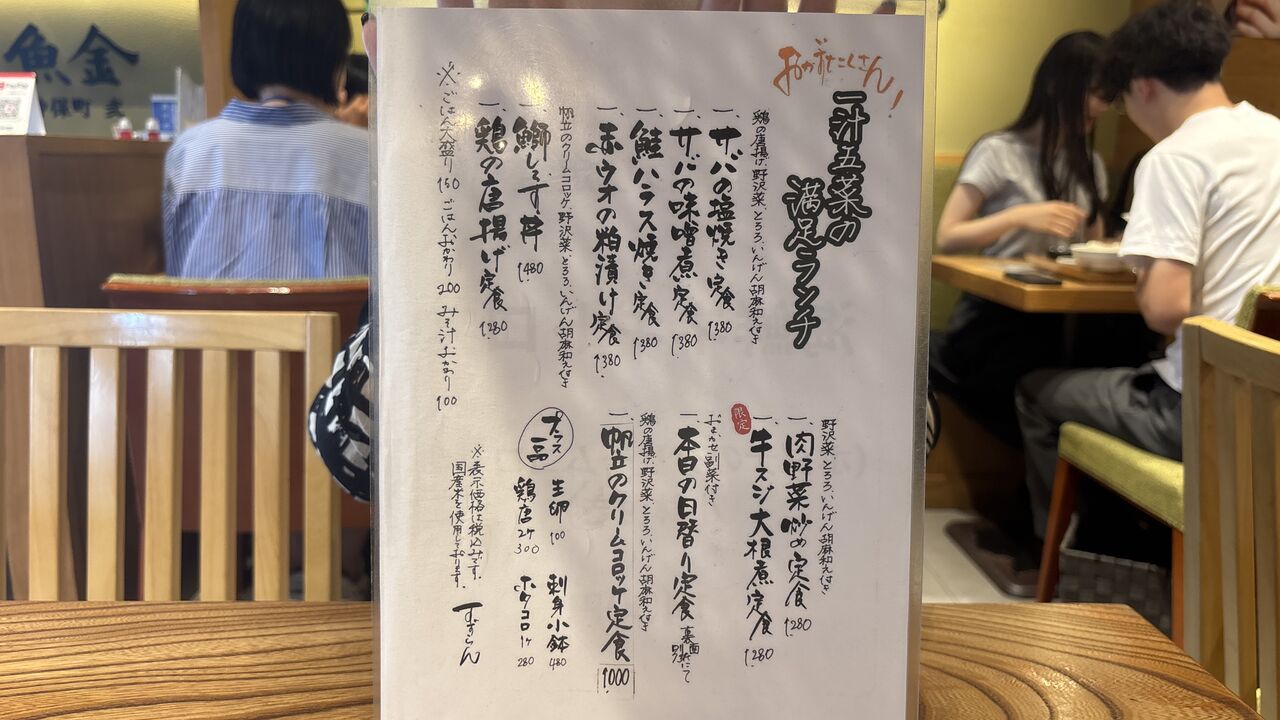 おかずたくさん!
一汁五菜の
満足ランチ
鶏の唐揚げ、野沢菜、とろろ、いんげん胡麻和え付き
一、サバの塩焼き定食 1,380
一、サバの味噌煮定食 1,380
一、鮭ハラス焼き定食 1,380
一、赤ウオの粕漬け定食 1,380
帆立のクリームコロッケ、野沢菜、とろろ、いんげん胡麻和え付き
一、鰤しらす丼 1,480
一、鶏の唐揚げ定食 1,280
※ごはん大盛り 150 ごはんおかわり 200 みそ汁おかわり 100
野沢菜、とろろ、いんげん胡麻和え付き
一、肉野菜炒め定食 1,280
限定
一、牛スジ大根煮定食 1,280
おまかせ副菜付き
一、本日の日替り定食 裏面
別紙にて
鶏の唐揚げ、野沢菜、とろろ、いんげん胡麻和え付き
一、帆立のクリームコロッケ定食 1,000
プラス
一品
生卵 100 刺身小鉢 480
鶏唐2ケ 300 ホタコロ1ケ 280
※表示価格は税込みです。
国産米を使用しております。
すずらん
魚金
神保町
PayPay